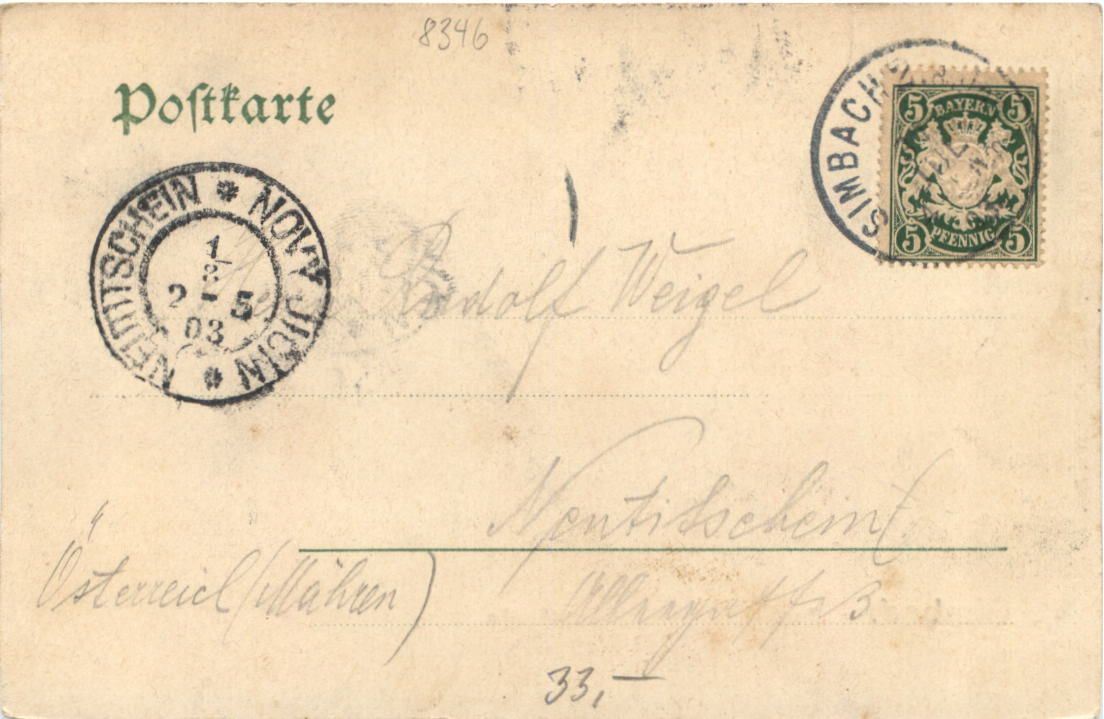 8346
Postkarte
SIMBACH
5 BAYERN 5
5 PFENNIG 5
NEUTITSCHEIN * NOVÝ JIČÍN *
1/8
2 5
03
Rudolf Weigel
Neutitschein
Österreich (Mähren)
3
33,—